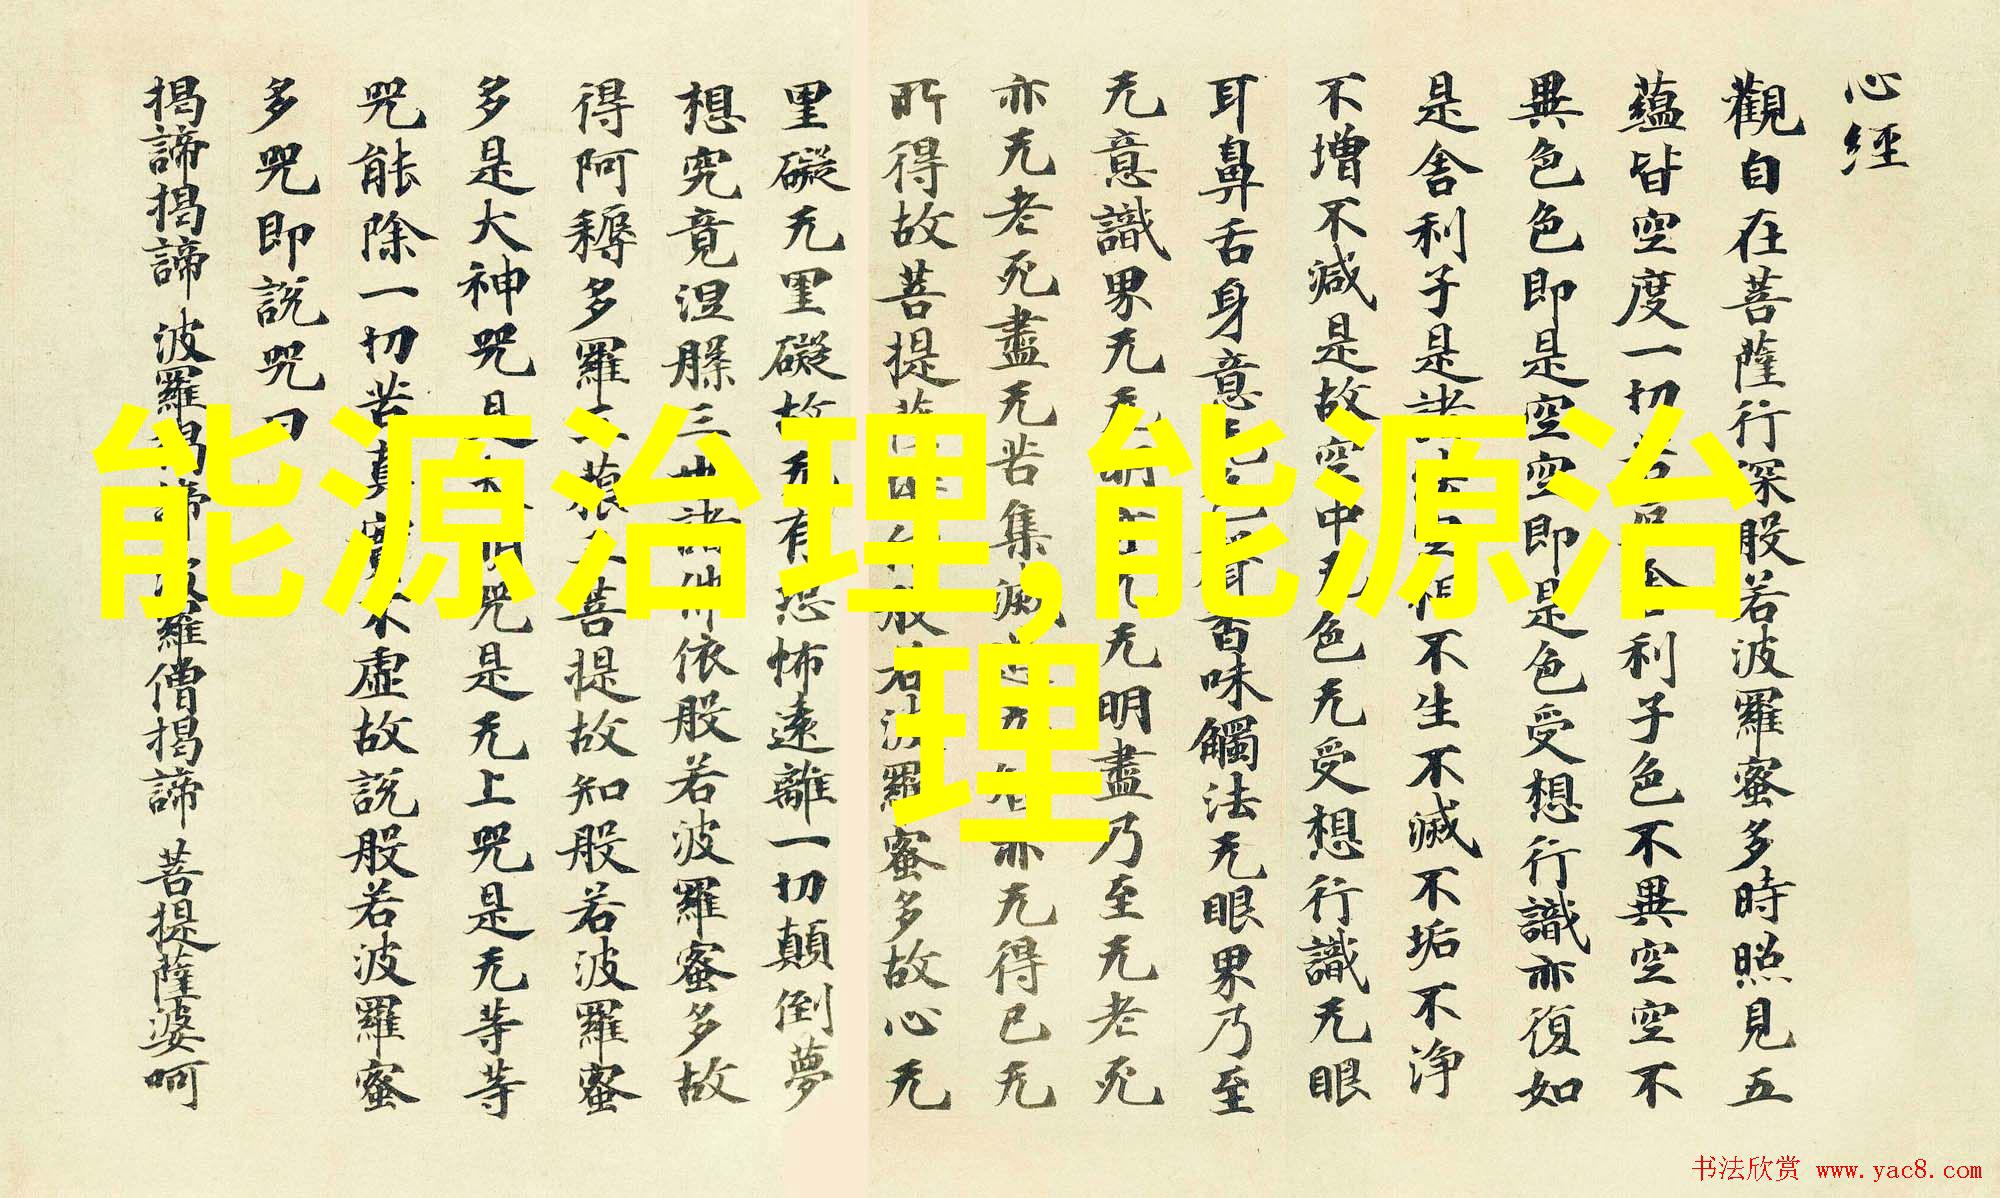 心經
觀自在菩薩行深般若波羅蜜多時照見五
蘊皆空度一切苦厄舍利子色不異空空不
異色色即是空空即是色受想行識亦復如
是舍利子是諸法空相不生不滅不垢不淨
不增不減是故空中无色无受想行識无眼
耳鼻舌身意无色聲香味觸法无眼界乃至
无意識界无无明亦无无明盡乃至无老死
亦无老死盡无苦集滅道无智亦无得已无
所得故菩提薩埵依般若波羅蜜多故心无
罣礙无罣礙故无有恐怖遠離一切顛倒夢
想究竟涅槃三世諸佛依般若波羅蜜多故
得阿耨多羅三藐三菩提故知般若波羅蜜
多是大神咒是大明咒是无上咒是无等等
咒能除一切苦真實不虛故說般若波羅蜜
多咒即說咒曰
揭諦揭諦 波羅揭諦 波羅僧揭諦 菩提薩婆呵
能源治理,能源治
理
书法欣赏 www.yac8.com